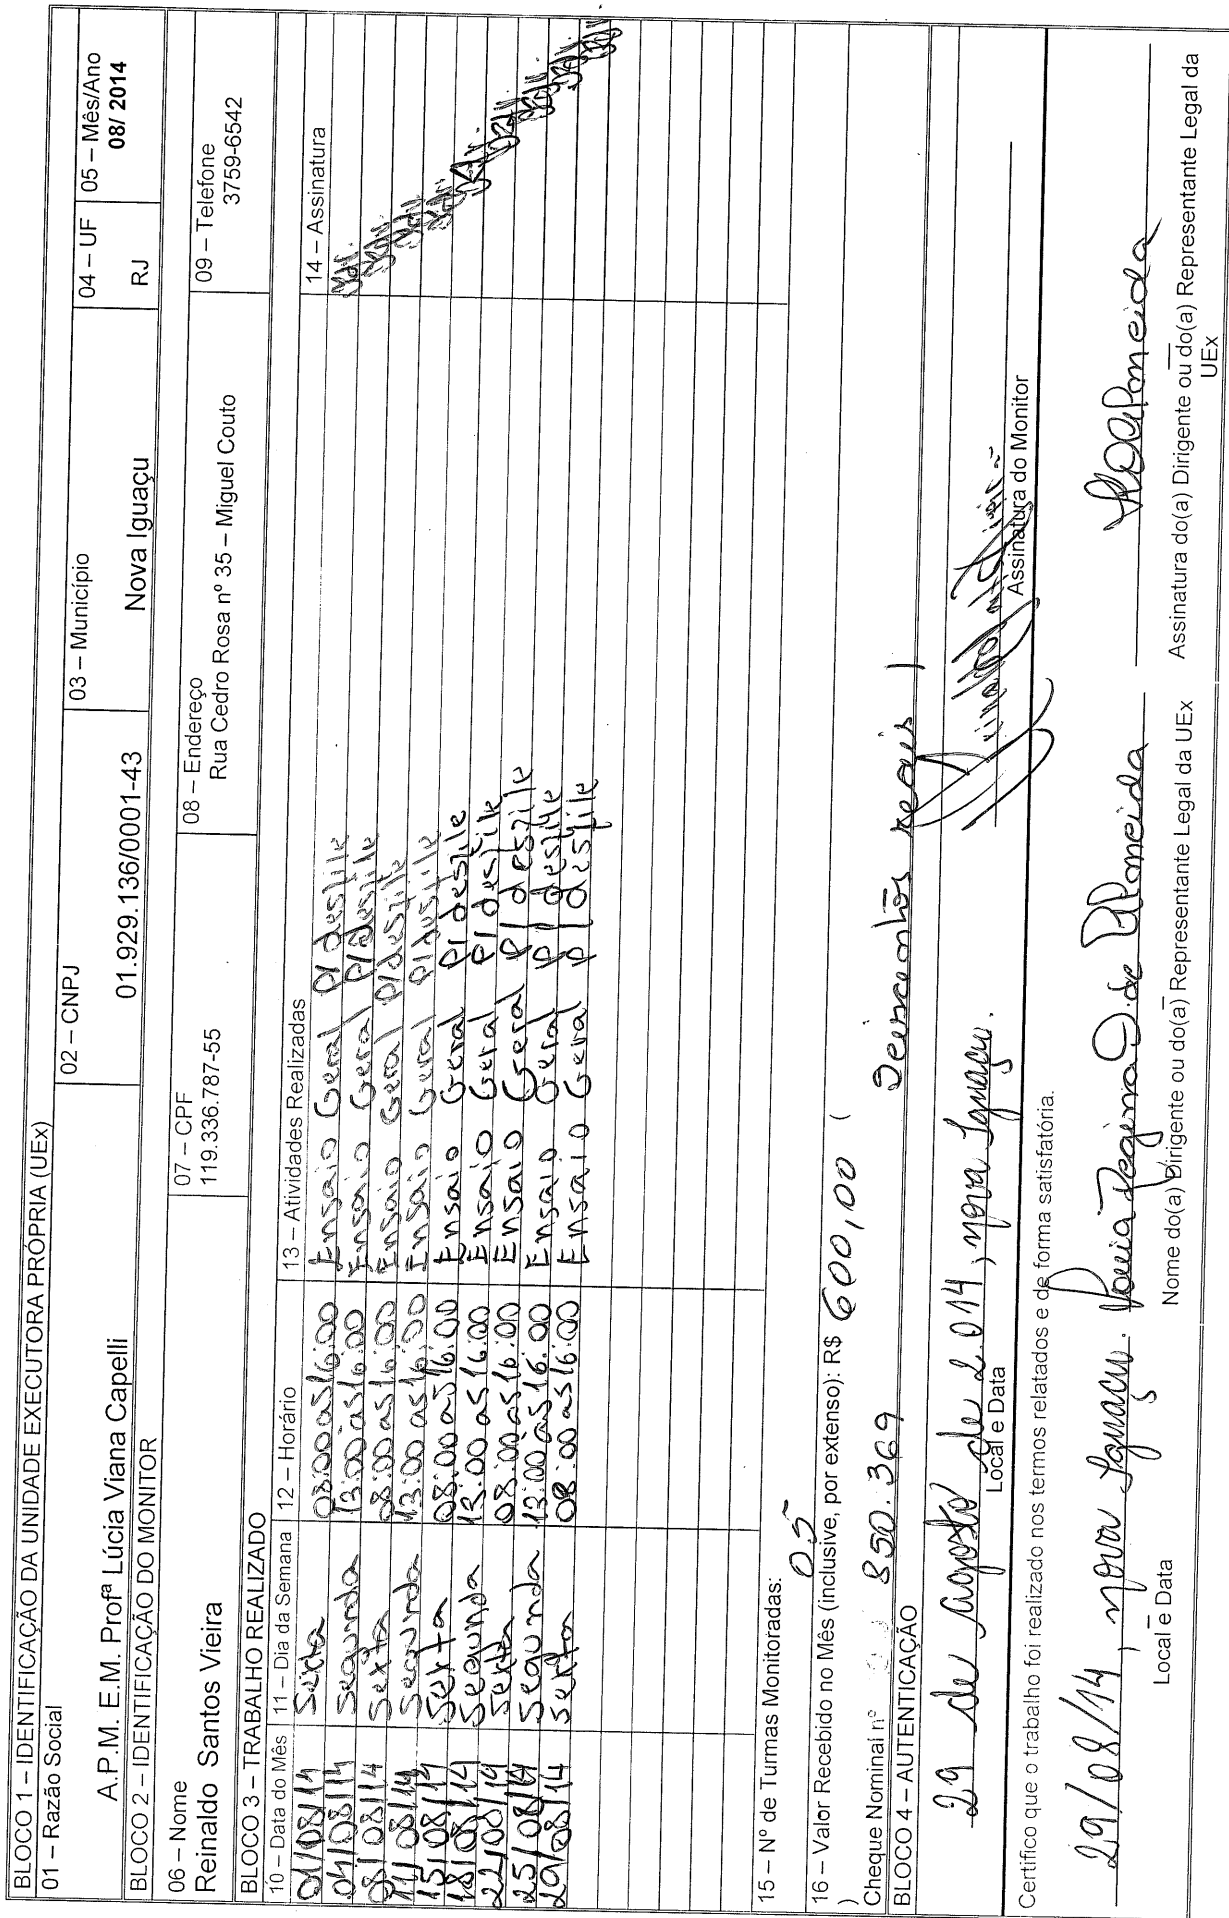 BLOCO 1 – IDENTIFICAÇÃO DA UNIDADE EXECUTORA PRÓPRIA (UEx)
01 – Razão Social
A.P.M. E.M. Profª Lúcia Viana Capelli
02 – CNPJ
01.929.136/0001-43
03 – Município
Nova Iguaçu
04 – UF
RJ
05 – Mês/Ano
08/ 2014
BLOCO 2 – IDENTIFICAÇÃO DO MONITOR
06 – Nome
Reinaldo Santos Vieira
07 – CPF
119.336.787-55
08 – Endereço
Rua Cedro Rosa nº 35 – Miguel Couto
09 – Telefone
3759-6542
BLOCO 3 – TRABALHO REALIZADO
10 – Data do Mês 11 – Dia da Semana 12 – Horário 13 – Atividades Realizadas 14 – Assinatura
01/08/14 Sexta 08:00 as 16:00 Ensaio Geral p/ desfile
04/08/14 Segunda 13:00 as 16:00 Ensaio Geral p/ desfile
08/08/14 Sexta 08:00 as 16:00 Ensaio Geral p/ desfile
11/08/14 Segunda 13:00 as 16:00 Ensaio Geral p/ desfile
15/08/14 Sexta 08:00 as 16:00 Ensaio Geral p/ desfile
18/08/14 Segunda 13:00 as 16:00 Ensaio Geral p/ desfile
22/08/14 Sexta 08:00 as 16:00 Ensaio Geral p/ desfile
25/08/14 Segunda 13:00 as 16:00 Ensaio Geral p/ desfile
29/08/14 Sexta 08:00 as 16:00 Ensaio Geral p/ desfile
15 – Nº de Turmas Monitoradas: 05
16 – Valor Recebido no Mês (inclusive, por extenso): R$ 600,00 ( Seiscentos reais )
)
Cheque Nominal nº 850.369
BLOCO 4 – AUTENTICAÇÃO
29 de agosto de 2.014, nova Iguaçu.
Local e Data
Assinatura do Monitor
Certifico que o trabalho foi realizado nos termos relatados e de forma satisfatória.
29/08/14, nova Iguaçu.
Local e Data
Nome do(a) Dirigente ou do(a) Representante Legal da UEx
Assinatura do(a) Dirigente ou do(a) Representante Legal da
UEx